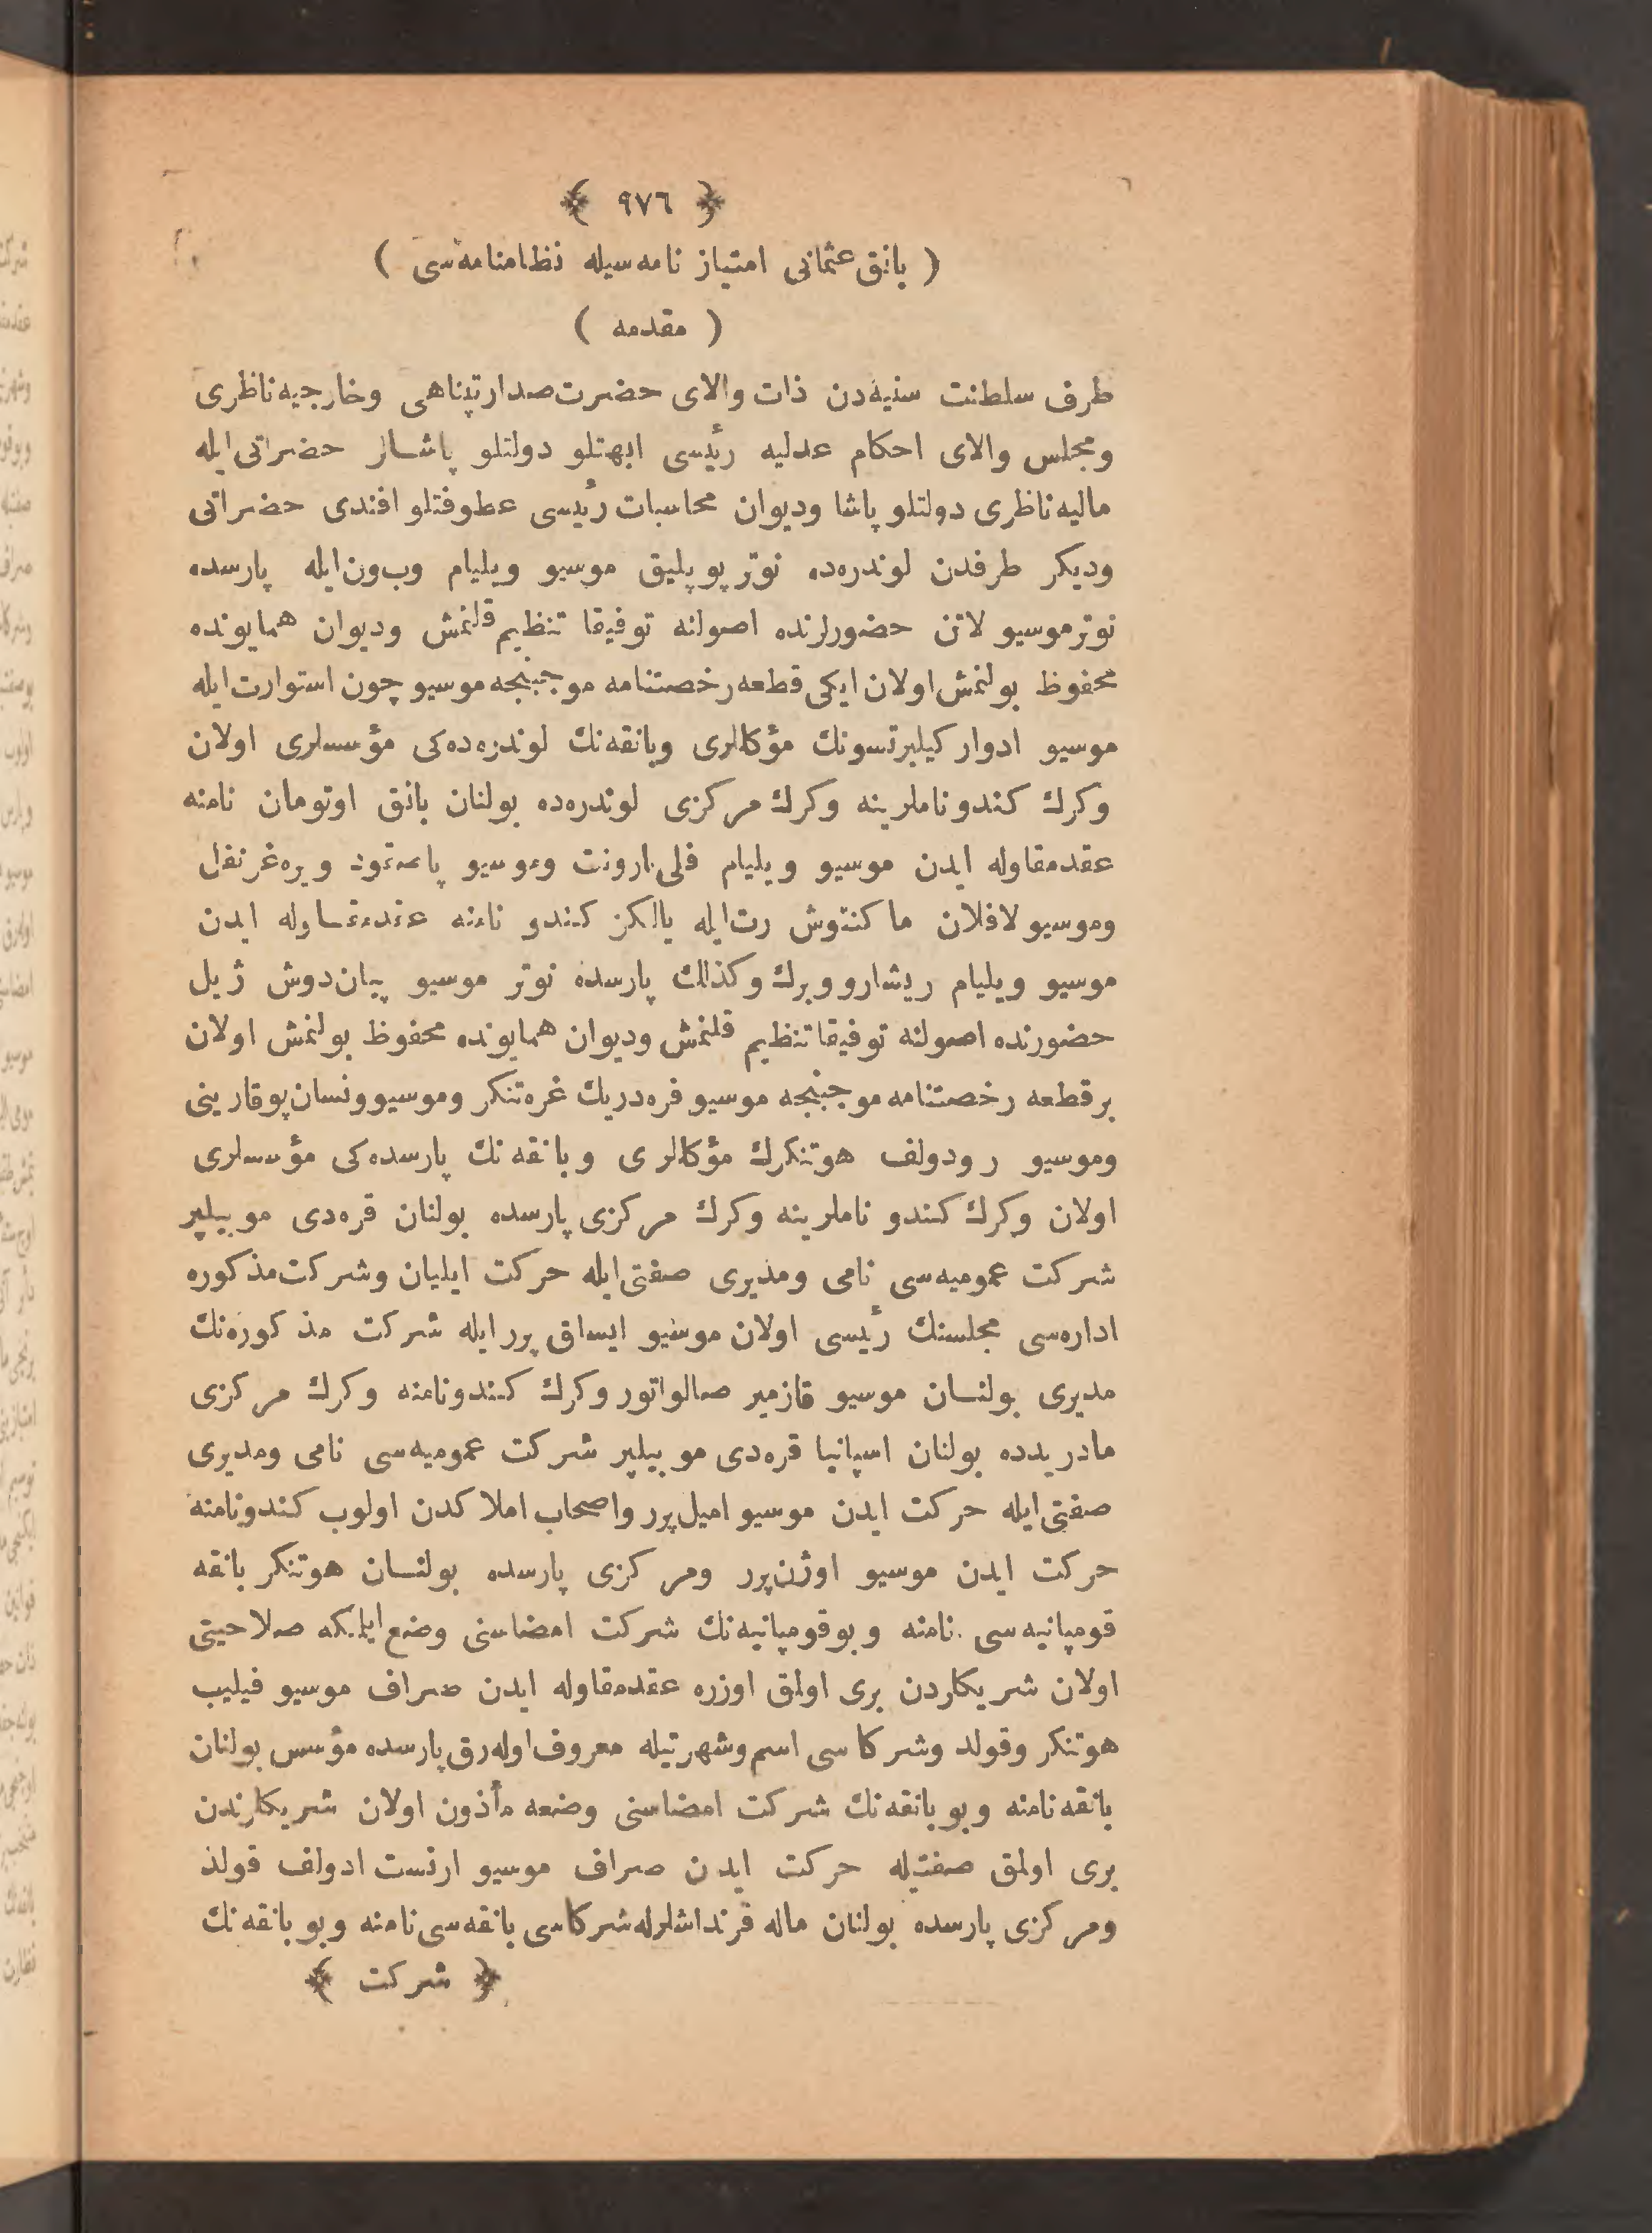 ﴿ ٩٧٦ ﴾
( بانق عثمانی امتیاز نامه سیله نظامنامه سی )
( مقدمه )
طرف سلطنت سنیه دن ذات والای حضرت صدارتپناهی وخارجیه ناظری
ومجلس والای احکام عدلیه رئیسی ابهتلو دولتلو پاشالر حضراتی ایله
مالیه ناظری دولتلو پاشا ودیوان محاسبات رئیسی عطوفتلو افندی حضراتی
ودیکر طرفدن لوندره ده نوتر پوپلیق موسیو ویلیام وب ون ایله پارسده
نوتر موسیو لاتن حضورلرنده اصولنه توفیقا تنظیم قلنمش ودیوان همایونده
محفوظ بولنمش اولان ایکی قطعه رخصتنامه موجبنجه موسیو چون استوارت ایله
موسیو ادوار کیلبرتسونك مؤکللری وبانقه نك لوندره ده کی مؤسسلری اولان
وکرك کندو ناملرینه وکرك مرکزی لوندره ده بولنان بانق اوتومان نامنه
عقد مقاوله ایدن موسیو ویلیام قلی ارونت وموسیو پاسقود ویره غرنفل
وموسیو لاقلان ماکنتوش رت ایله یالکز کندو نامنه عقد مقاوله ایدن
موسیو ویلیام ریشارو وبرك وکذلك پارسده نوتر موسیو پیان دوش ژیل
حضورنده اصولنه توفیقا تنظیم قلنمش ودیوان همایونده محفوظ بولنمش اولان
بر قطعه رخصتنامه موجبنجه موسیو فره دریك غره تنکر وموسیو ونسان پوقارینی
وموسیو رودولف هوتنکرك مؤکللری وبانقه نك پارسده کی مؤسسلری
اولان وکرك کندو ناملرینه وکرك مرکزی پارسده بولنان قره دی موبیلیر
شرکت عمومیه سی نامی ومدیری صفتی ایله حرکت ایلیان وشرکت مذکوره
اداره سی مجلسنك رئیسی اولان موسیو ایساق پرر ایله شرکت مذکوره نك
مدیری بولنسان موسیو قازمیر صالواتور وکرك کندو نامنه وکرك مرکزی
مادریدده بولنان اسپانیا قره دی موبیلیر شرکت عمومیه سی نامی ومدیری
صفتی ایله حرکت ایدن موسیو امیل پرر واصحاب املاکدن اولوب کندو نامنه
حرکت ایدن موسیو اوژن پرر ومرکزی پارسده بولنسان هوتنکر بانقه
قومپانیه سی نامنه وبو قومپانیه نك شرکت امضاسنی وضع ایلمکه صلاحیتی
اولان شریکلردن بری اولمق اوزره عقد مقاوله ایدن صراف موسیو فیلیب
هوتنکر وقولد وشرکاسی اسم وشهرتیله معروف اوله رق پارسده مؤسس بولنان
بانقه نامنه وبو بانقه نك شرکت امضاسنی وضعه مأذون اولان شریکلرندن
بری اولمق صفتیله حرکت ایدن صراف موسیو ارنست ادولف قولد
ومرکزی پارسده بولنان ماله قرنداشلرله شرکاسی بانقه سی نامنه وبو بانقه نك
﴿ شرکت ﴾